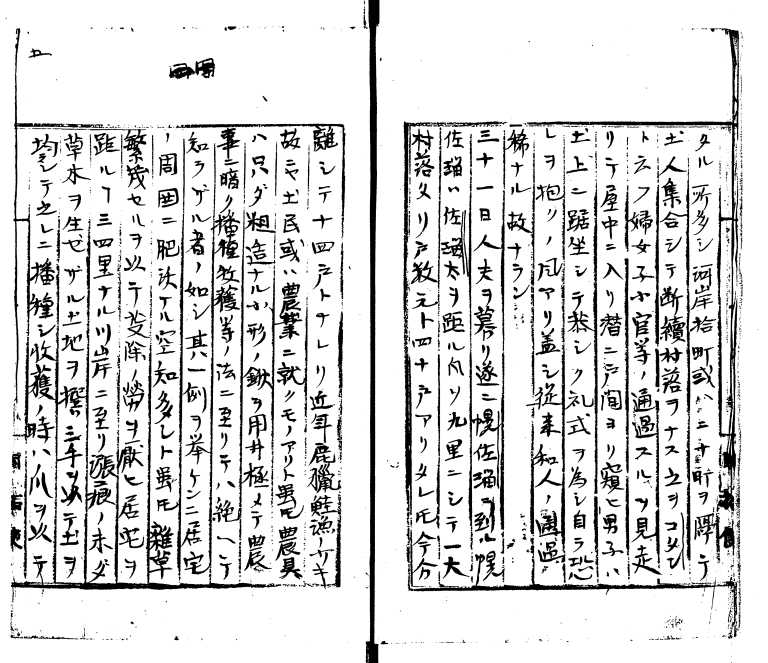 タル所多シ河岸拾町或ハ二十町ヲ隔テ
土人集合シテ断續村落ヲナス之ヲコタン
ト云フ婦女子小官等ノ通過スルヲ見走
リテ屋中ニ入リ潜ニ戸間ヨリ窺ヒ男子ハ
土上ニ踞坐シテ恭シク礼式ヲ為シ自ラ恐
レヲ抱クノ風アリ盖シ従来和人ノ通過
稀ナル故ナラン
三十一日人夫ヲ募リ遂ニ幌佐瑠ニ到ル幌
佐瑠ハ佐瑠太ヲ距ル凡ソ九里ニシテ一大
村落タリ戸数元ト四十戸アリタレ𪜈今分
離シテ十四戸トナレリ近年鹿獵鮭漁ノナキ
故ニヤ土民或ハ農業ニ就クモノアリト雖𪜈農具
ハ只ダ粗造ナル小形ノ鍬ヲ用井極メテ農
事ニ暗ク播種收穫等ノ法ニ至リテハ絶ヘテ
知ラザル者ノ如シ其一例ヲ挙ケンニ居宅
ノ周囲ニ肥沃ナル空知多シト雖𪜈雜草
繁茂セルヲ以テ芟除ノ勞ヲ厭ヒ居宅ヲ
距ル丁三四里ナル川岸ニ至リ漲痕ノ未ダ
草木ヲ生セザル土地ヲ撰ミ手ヲ以テ土ヲ
均シテ之レニ播種シ收獲ノ時ハ爪ヲ以テ
五